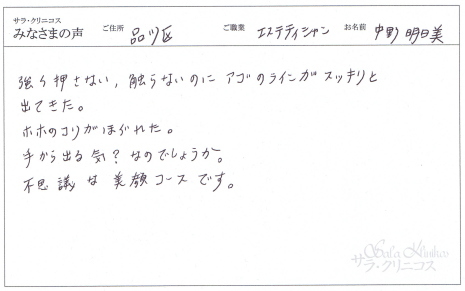 サラ・クリニコス
みなさまの声 ご住所 品川区 ご職業 エステティシャン お名前 中野 明日美
強く押さない、触らないのに アゴのラインが スッキリと
出てきた。
ホホのコリがほぐれた。
手から出る気？なのでしょうか。
不思議な美顔コースです。
Sala Klinikos
サラ・クリニコス